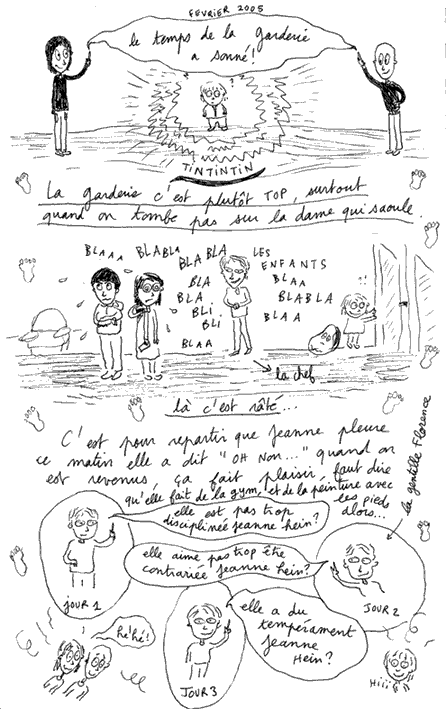 FEVRIER 2005
le temps de la garderie
a sonné!
TINTINTIN
La garderie c'est plutôt TOP, surtout
quand on tombe pas sur la dame qui saoule.
BLAAA BLABLA BLA BLA LES
ENFANTS
BLA BLAA
BLA BLABLA
BLI BLAA
BLI
BLAA
la chef
là c'est râté...
C'est pour repartir que Jeanne pleure
ce matin elle a dit "OH NON..." quand on
est revenus, ça fait plaisir, faut dire
qu'elle fait de la gym, et de la peinture avec
les pieds
alors...
la gentille Florence
elle est pas trop
disciplinée Jeanne hein?
JOUR 1
elle aime pas trop être
contrariée Jeanne hein?
JOUR 2
elle a du
tempérament
Jeanne
Hein?
JOUR 3
hé hé!
Hiii